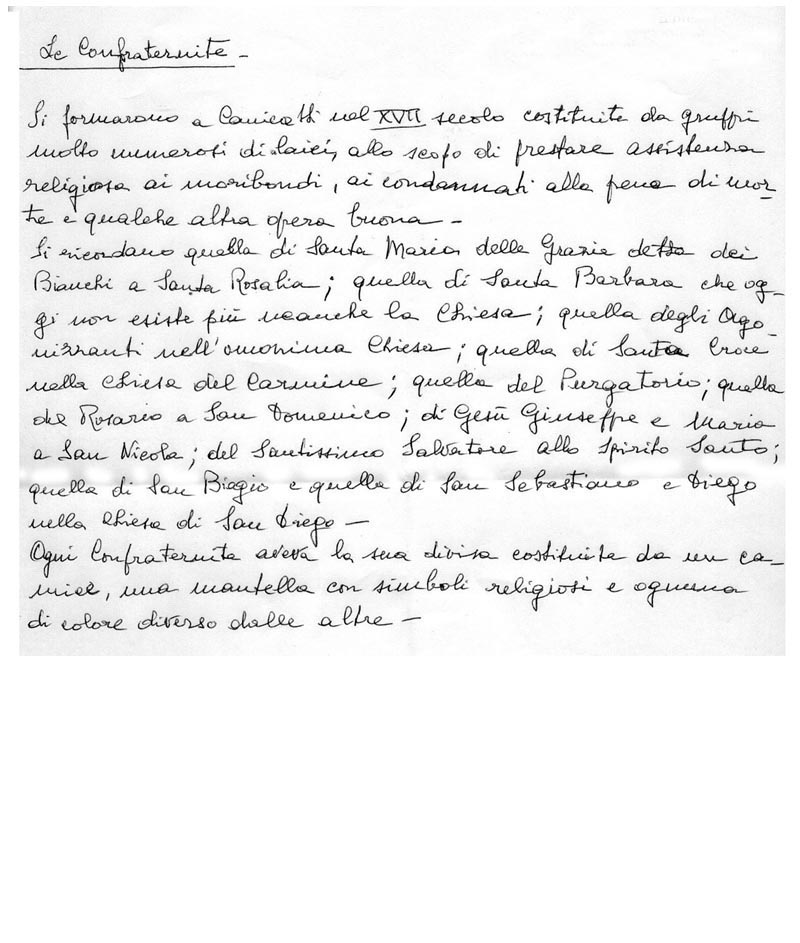 Le Confraternite -
Si formarono a Canicattì nel XVII secolo costituite da gruppi
molto numerosi di laici, allo scopo di prestare assistenza
religiosa ai moribondi, ai condannati alla pena di mor-
te e qualche altra opera buona -
Si ricordano quella di Santa Maria delle Grazie detta dei
Bianchi a Santa Rosalia; quella di Santa Barbara che og-
gi non esiste più neanche la Chiesa; quella degli Ago-
nizzanti nell'omonima Chiesa; quella di Santa Croce
nella Chiesa del Carmine; quella del Purgatorio; quella
del Rosario a San Domenico; di Gesù Giuseppe e Maria
a San Nicola; del Santissimo Salvatore allo Spirito Santo;
quella di San Biagio e quella di San Sebastiano e Diego
nella Chiesa di San Diego -
Ogni Confraternita aveva la sua divisa costituita da un ca-
mice, una mantella con simboli religiosi e ognuna
di colore diverso dalle altre -